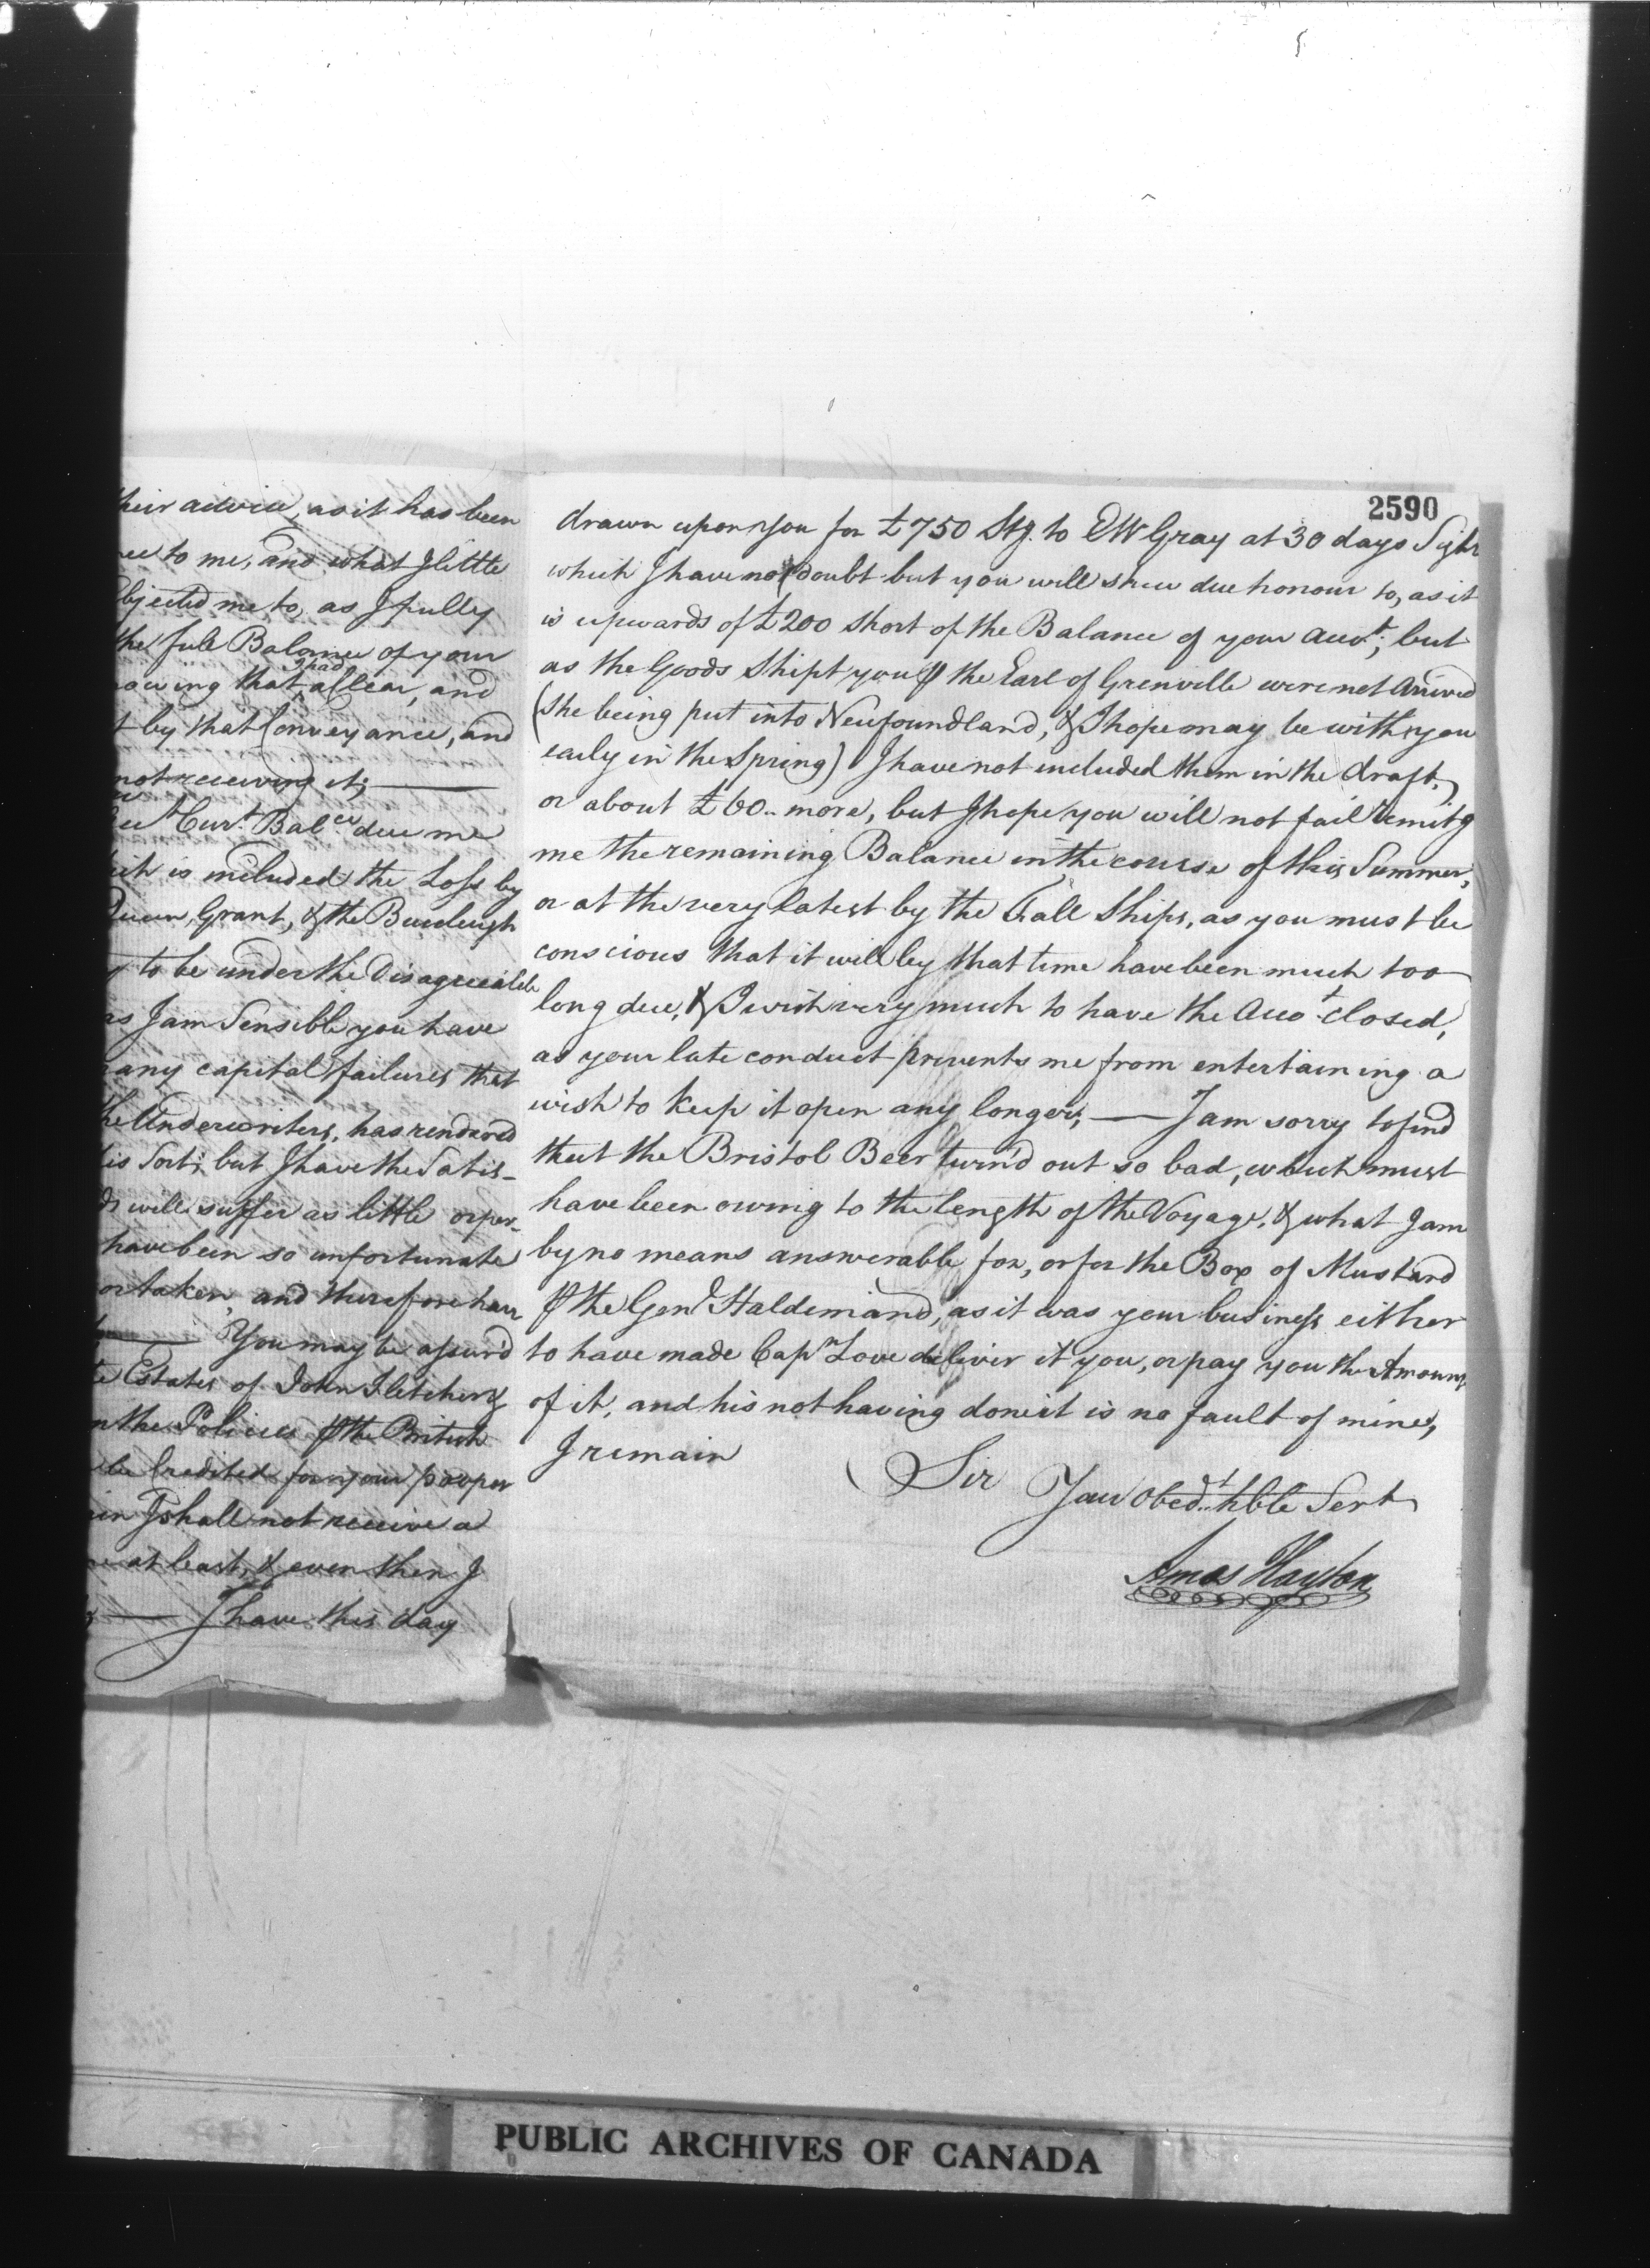 their advice, as it has been
to me, and what I little
me to, as I fully
the full Balance of your
that I had a Clear, and
by that Conveyance, and
not receiving it; —
Curt. Balce. due me
is included the Loss by
Grant, & the Burleigh
to be under the Disagreeable
as I am Sensible you have
many capital failures that
the Underwriters, has rendered
Sort; but I have the Satis-
will suffer as little
have been so unfortunate
or taken, and therefore have
— You may be assur'd
Estates of John Fletcher &
the Policies ⅌ the British
be Credited for your proper
I shall not receive a
at least, & even then I
— I have this day
2590
drawn upon you for £750 Stg. to E W Gray at 30 days Sight
which I have no doubt but you will shew due honour to, as it
is upwards of £200 short of the Balance of your Accot.; but
as the Goods Shipt you ⅌ the Earl of Grenville were not Arrived
(She being put into Newfoundland, & I hope may be with you
early in the Spring) I have not included them in the draft,
or about £60.. more, but I hope you will not fail remitg
me the remaining Balance in the course of this Summer,
or at the very latest by the Fall Ships, as you must be
conscious that it will by that time have been much too
long due, & I wish very much to have the Accot. closed,
as your late conduct prevents me from entertaining a
wish to keep it open any longer; — I am sorry to find
that the Bristol Beer turn'd out so bad, which must
have been owing to the length of the Voyage, & what I am
by no means answerable for, or for the Box of Mustard
⅌ the Genl Haldimand, as it was your business either
to have made Capn Love deliver it you, or pay you the Amount
of it, and his not having done it is no fault of mine,
I remain
Sir
Your Obedt. hble Sert
Amos Hayton
PUBLIC ARCHIVES OF CANADA